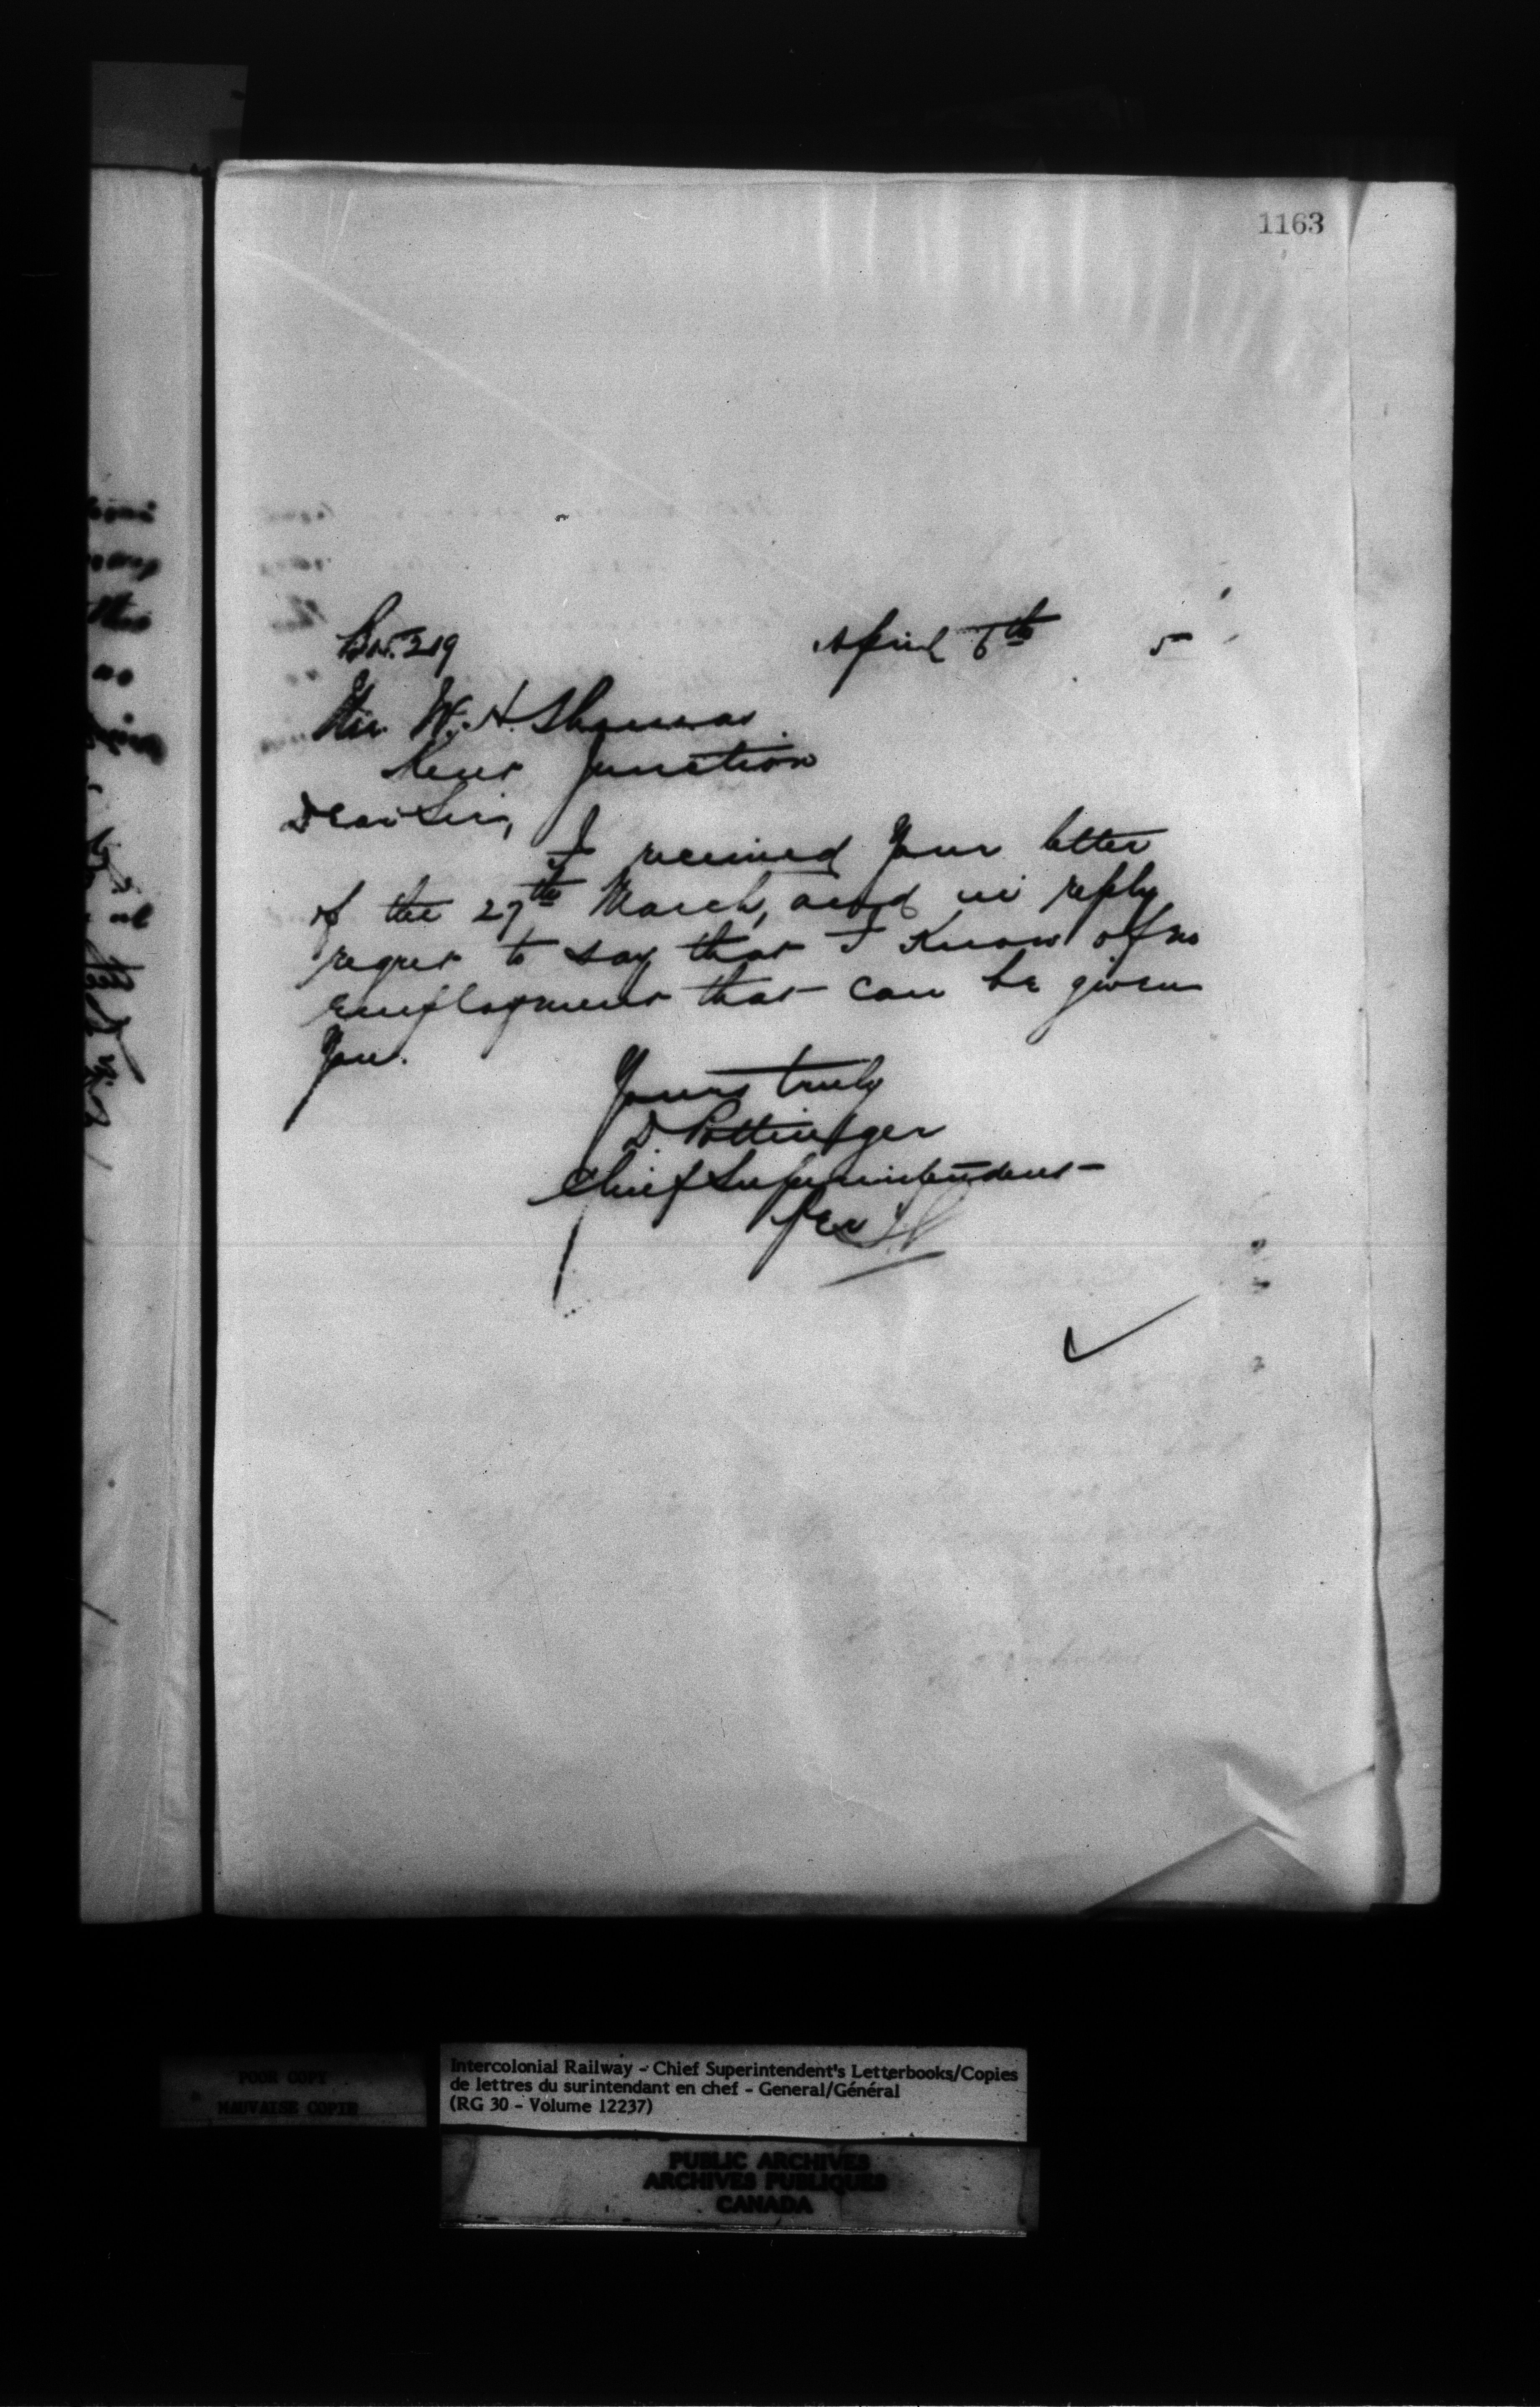 1163
April 6th 5
Mr. W. H. Thomas
Kent Junction
Dear Sir,
I received your letter
of the 27th March, and in reply
regret to say that I know of no
employment that can be given
you.
Yours truly
D Pottinger
Chief Superintendent
Per
POOR COPY
MAUVAISE COPIE
Intercolonial Railway - Chief Superintendent's Letterbooks/Copies
de lettres du surintendant en chef - General/Général
(RG 30 - Volume 12237)
PUBLIC ARCHIVES
ARCHIVES PUBLIQUES
CANADA